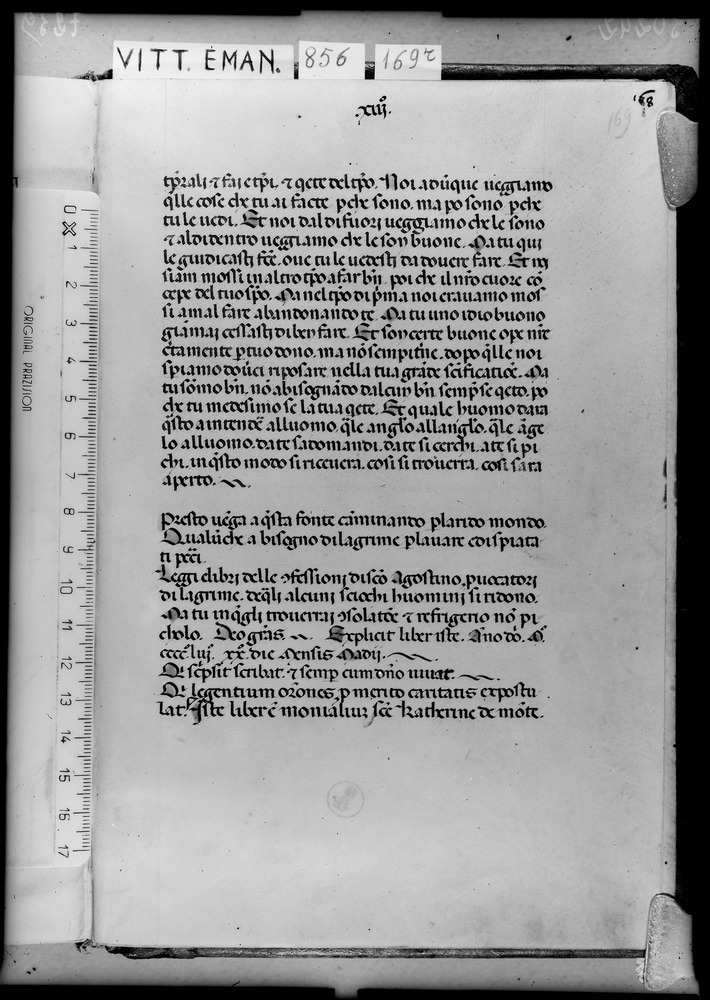 VITT. EMAN. 856 169r
.xiij.
168
169
tp̄rali ⁊ fai e tp̄i. ⁊ q̄ete del tp̄o. Noi adūque ueggiamo
q̄lle cose che tu ai facte perche sono. ma po sono perche
tu le uedi. Et noi dal di fuori ueggiamo che le sono
⁊ al didentro ueggiamo che le son buone. Ma tu qui
le guidicasti fcē. oue tu le uedesti da douere fare. Et noi
siam mossi in altro tp̄o a far bn̄. poi che il nr̄o cuore cō
cepe del tuo sp̄o. Ma nel tp̄o di p̄ma noi erauamo mos
si a mal fare abandonando te. Ma tu uno idio buono
giamai cessasti di ben fare. Et son certe buone ope nr̄e
certamente p tuo dono. ma nō sempit̄ne. dopo q̄lle noi
spiamo douerci riposare nella tua grāde scificatiōe. Ma
tu sōmo bn̄. nō abisognādo dalcun bn̄ semp̄ se q̄eto. po
che tu medesimo se la tua q̄ete. Et quale huomo dara
q̄sto a intendē alluomo. q̄le anglo allanglo. q̄le āge
lo alluomo. da te sadomandi. da te si cerchi. a te si pi
chi. in q̄sto modo si riceuera. cosi si trouerra. cosi sara
aperto.
Presto uēga a q̄sta fonte caminando p larido mondo.
Qualūche a bisogno di lagrime p lauare coi spiata
ti pcc̄i.
Leggi chibri delle ꝯfessioni di scō Agostino, puocatori
di lagrime. de q̄li alcuni sciochi huomini si ridono.
Ma tu in q̄gli trouerrai ꝯsolatōe ⁊ refrigerio nō pi
cholo. Deo grās. Explicit liber iste. Āno dō. M̊.
cccc̊ lvj. xx̊. die Mensis Madij.
Qi scpsit scribat. ⁊ semp cum dn̄o uiuat.
Qi legentium orōnes, p merito caritatis expostu
lat. Iste liber ē monialiuz scē Katherine de mōte.
ORIGINAL PRÄZISION
0 1 2 3 4 5 6 7 8 9 10 11 12 13 14 15 16 17